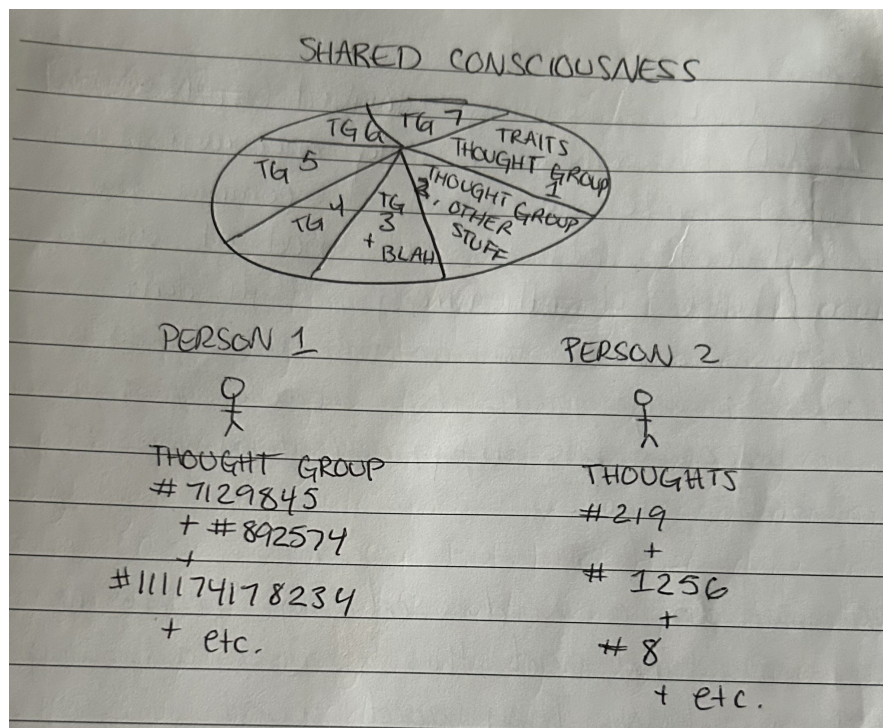 SHARED CONSCIOUSNESS
TG 6
TG 7
TRAITS
THOUGHT GROUP
1
THOUGHT GROUP
2, OTHER
STUFF
TG
3
+ BLAH
TG 4
TG 5
PERSON 1
THOUGHT GROUP
# 7129845
+ # 892574
+
# 111174178234
+ etc.
PERSON 2
THOUGHTS
# 219
+
# 1256
+
# 8
+ etc.